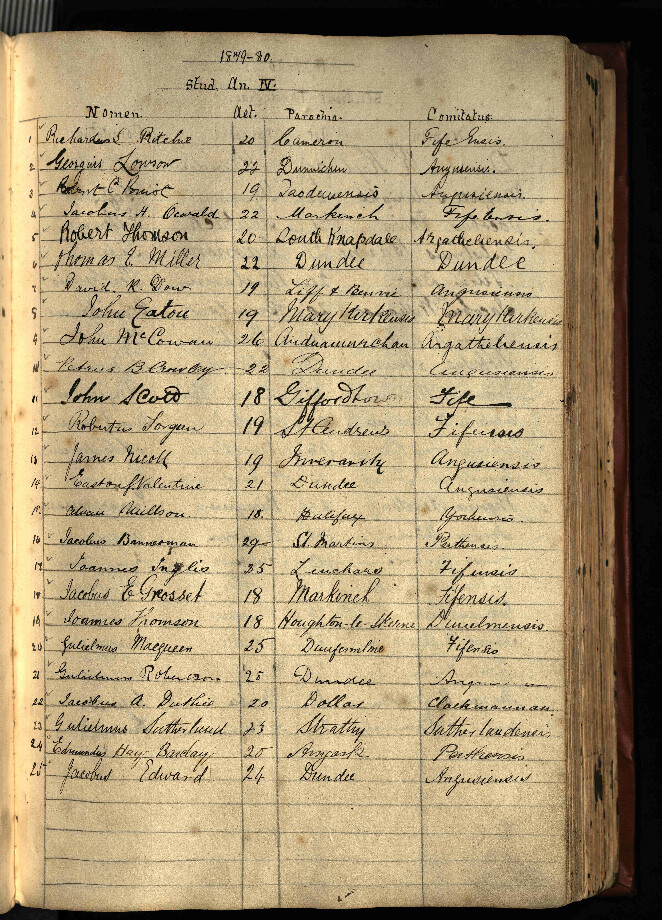 1879-80.
Stud. An. IV.
Nomen. Aet. Parochia. Comitatus.
1 Richardus S. Ritchie 20 Cameron Fife Ensis.
2 Georgius Lowson 22 Dunnichen Angusensis.
3 19 Taodunensis Angusiensis.
4 Jacobus H. Oswald 22 Markinch Fifeensis.
5 Robert Thomson 20 South Knapdale Argatheliensis.
6 Thomas E. Miller 22 Dundee Dundee
7 David R. Dow 19 Liff & Benvie Angusiensis
8 John Eaton 19 MaryKirkensis MaryKirkensis
9 John McCowan 26 Ardnamurchan Argatheliensis
10 Petrus B Crowley 22 Dundee Angusiensis
11 John Scott 18 Giffordtown Fife
12 Robertus 19 St Andrews Fifensis
13 James Nicoll 19 Inverarity Angusiensis
14 Easton J Valentine 21 Dundee Angusiensis
15 18 Halifax
16 Jacobus Bannerman 29 St. Martins Perthensis
17 Joannes Inglis 25 Leuchars Fifensis
18 Jacobus E Grosset 18 Markinch Fifensis.
19 Joannes Thomson 18 Houghton-le-Skerne Dunelmensis.
20 Gulielmus Macqueen 25 Dunfermline Fifensis
21 Gulielmus Robertson 25 Dundee
22 Jacobus A. Duthie 20 Dollar Clackmannan
23 Gulielmus Sutherland 23 Strathy Sutherlandensis
24 Edmundus Hay Barclay 20 Perthensis
25 Jacobus Edward 24 Dundee Angusiensis